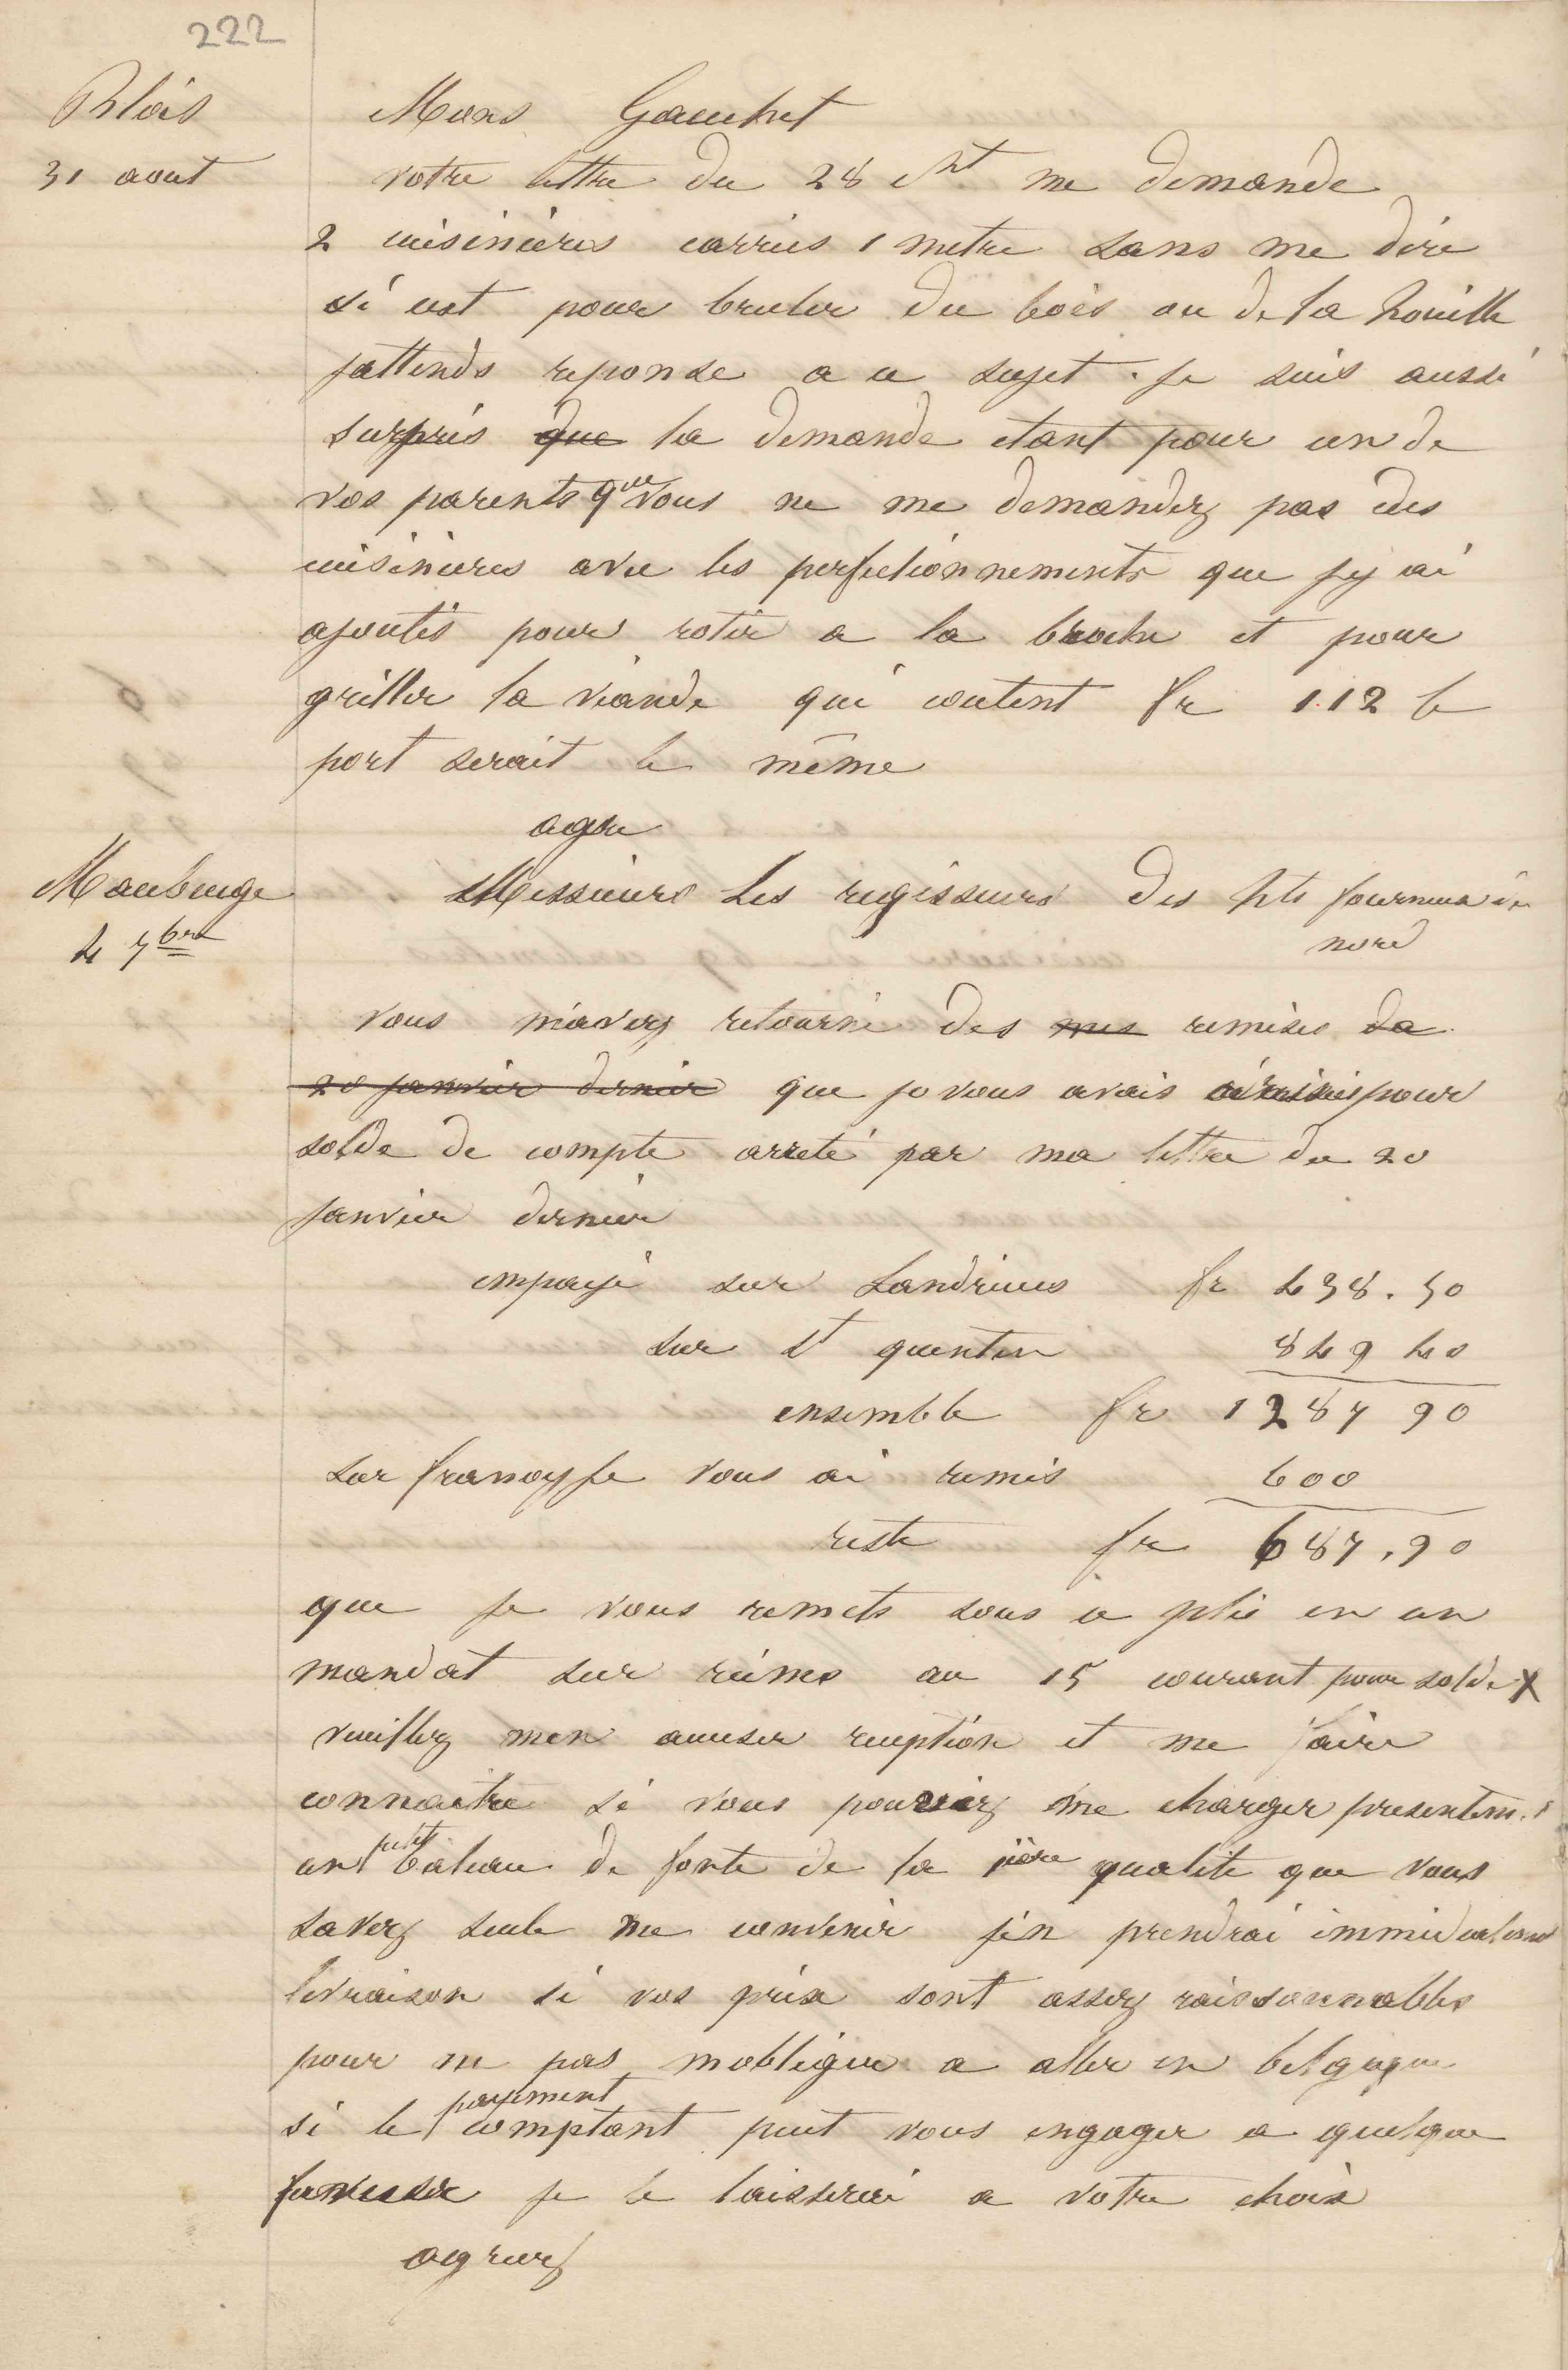 222
Blois
31 aout
Mons Gauchet
votre lettre du 28 ct me demande
2 cuisinières carrées 1 metre sans me dire
si cest pour bruler du bois ou de la houille
jattends reponse a ce sujet. je suis aussi
surpris que la demande etant pour un de
vos parents que vous ne me demandez pas des
cuisinieres avec les perfectionnements que jy ai
ajoutés pour rotir a la broche et pour
griller la viande qui coutent fr 112 le
port serait le même
agre
Maubeuge
4 7bre
Messieurs Les regisseurs des hts fourneaux du
nord
vous mavez retourné des mes remises da
20 janvier dernier que je vous avais pour
solde de compte arreté par ma lettre du 20
janvier dernier
impayé sur Landrecies fr 438.50
sur St quentin 849 40
ensemble fr 1287 90
sur je vous ai remis 600
reste fr 687.90
que je vous remets sous ce plis en un
mandat sur reims au 15 courant pour solde X
veuillez men accuser reception et me faire
connaitre si vous pourriez me charger presentemt
un petit bateau de fonte de la 1ière qualite que vous
savez seule me convenir jen prendrai immediatement
livraison si vos prix sont assez raisonnables
pour ne pas mobliger a aller en belgique
si le payement comptant peut vous engager a quelque
faveur je le laisserai a votre choix
agreez